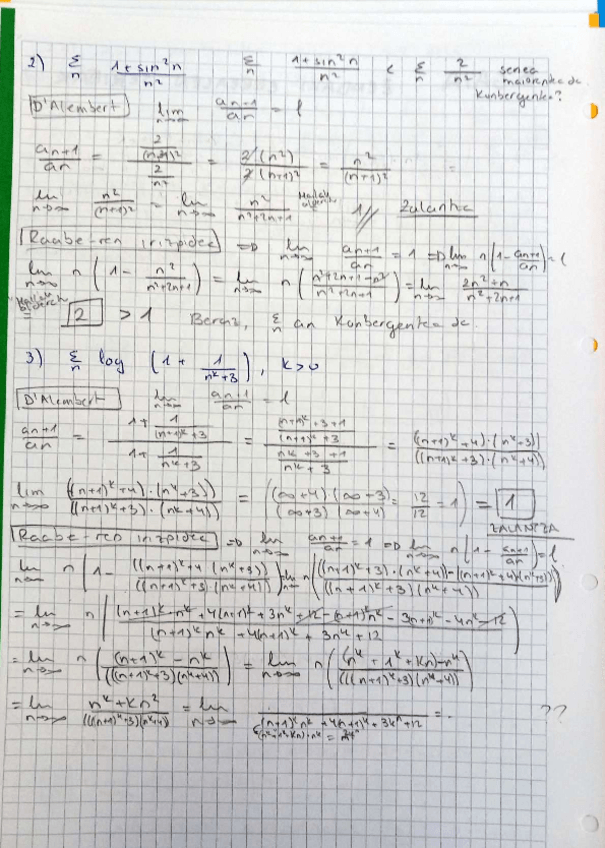 2) Σ_n (1+sin²n)/n²    Σ_n (1+sin²n)/n² < Σ_n 2/n² seriea
maiorantea da.
Konbergentea?
D'Alembert lim_{n→∞} a_{n+1}/a_n = l
a_{n+1}/a_n = (2/(n+1)²)/(2/n²) = 2(n²)/2(n+1)² = n²/(n+1)²
lim_{n→∞} n²/(n+1)² = lim_{n→∞} n²/(n²+2n+1) = 1 // Zalantza
Raabe-ren irizpidea ⇒ lim_{n→∞} a_{n+1}/a_n = 1 ⇒ lim_{n→∞} n(1 - a_{n+1}/a_n) = l
lim_{n→∞} n(1 - n²/(n²+2n+1)) = lim_{n→∞} n((n²+2n+1-n²)/(n²+2n+1)) = lim_{n→∞} (2n²+n)/(n²+2n+1)
= 2 > 1 Beraz, Σ_n an Konbergentea da.
3) Σ_n log (1 + 1/(n^k+3)), k>0
D'Alembert lim_{n→∞} a_{n+1}/a_n = l
a_{n+1}/a_n = (1 + 1/((n+1)^k+3))/(1 + 1/(n^k+3)) = (((n+1)^k+3+1)/((n+1)^k+3))/((n^k+3+1)/(n^k+3)) = ((n+1)^k+4)·(n^k+3)/((n+1)^k+3)·(n^k+4)
lim_{n→∞} (((n+1)^k+4)·(n^k+3))/(((n+1)^k+3)·(n^k+4)) = ((∞+4)(∞+3)/(∞+3)(∞+4) = 12/12 = 1) = 1
ZALANTZA
Raabe-ren irizpidea ⇒ lim_{n→∞} a_{n+1}/a_n = 1 ⇒ lim_{n→∞} n(1 - a_{n+1}/a_n) = l
lim_{n→∞} n(1 - ((n+1)^k+4)(n^k+3)/((n+1)^k+3)(n^k+4)) = lim_{n→∞} n((((n+1)^k+3)·(n^k+4) - ((n+1)^k+4)(n^k+3))/((n+1)^k+3)(n^k+4))
= lim_{n→∞} n(((n+1)^k n^k + 4(n+1)^k + 3n^k + 12 - (n+1)^k n^k - 3(n+1)^k - 4n^k - 12)/((n+1)^k n^k + 4(n+1)^k + 3n^k + 12))
= lim_{n→∞} n(((n+1)^k - n^k)/(((n+1)^k+3)(n^k+4))) = lim_{n→∞} n((n^k + 1^k + kn) - n^k)/(((n+1)^k+3)(n^k+4))
= lim_{n→∞} (n^k + kn²)/(((n+1)^k+3)(n^k+4)) = lim_{n→∞} /((n+1)^k n^k + 4(n+1)^k + 3n^k + 12) = .. ??